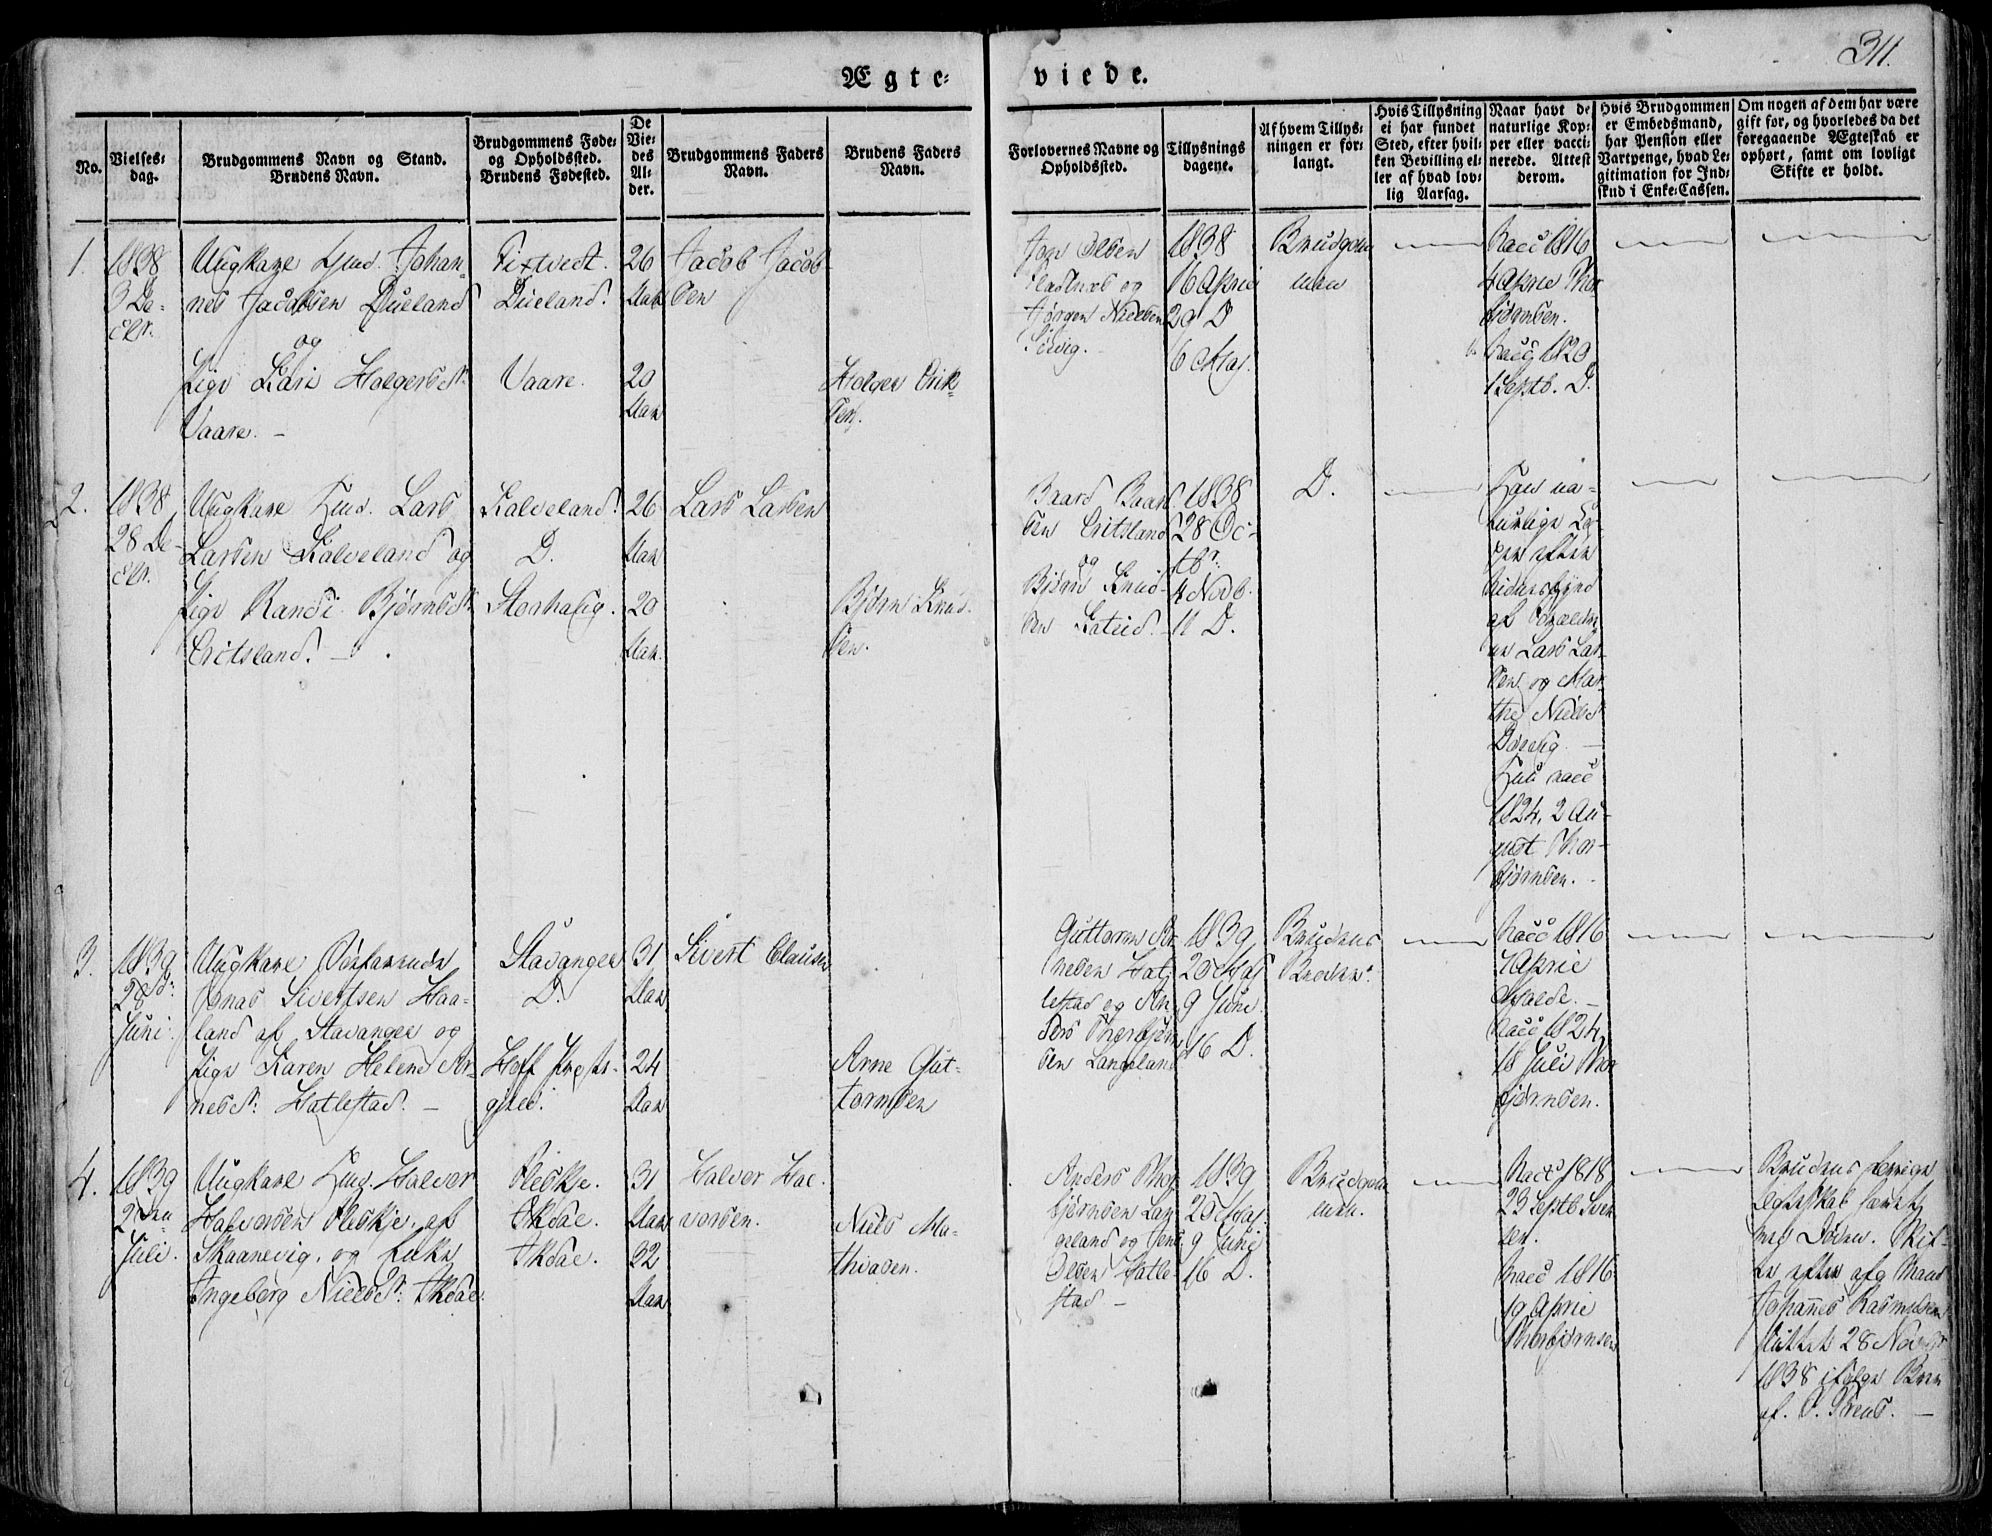 311.
Ægte-
viede.
No.
Vielses-
dag.
Brudgommens Navn og Stand.
Brudens Navn.
Brudgommens Føde-
og Opholdssted.
Brudens Fødested.
De
Vie-
des
Al-
der.
Brudgommens Faders
Navn.
Brudens Faders
Navn.
Forlovernes Navne og
Opholdssted.
Tillysnings
dagene.
Af hvem Tillys-
ningen er for-
langt.
Hvis Tillysning
ei har fundet
Sted, efter hvil-
ken Bevilling el-
ler af hvad lov-
lig Aarsag.
Naar havt de
naturlige Kop-
per eller vacci-
nerede. Attest
derom.
Hvis Brudgommen
er Embedsmand,
har Pension eller
Vartpenge, hvad Le-
gitimation for Ind-
skud i Enke-Cassen.
Om nogen af dem har være
gift før, og hvorledes da det
foregaaende Ægteskab er
ophørt, samt om lovligt
Skifte er holdt.
1.
1838
3 De-
cbr.
Ungkarl Johan-
nes Jacobsen Dueland
og
Pige Kari Holgersd:
Vaare. –
Tixtvedt.
Dueland.
Vaare.
26
Aar
20
Aar
Jacob Jacob-
sen
Holger Erik-
sen.
Jon Olsen
og
Jørgen Nielsen
1838
16 April
29 D
6 Maj.
Brudgom-
men
Vacc 1816
4 April Thor
bjørnsen.
Vacc 1820
1 Septb. D.
2.
1838
28 De-
cbr.
Ungkarl Lars
Larsen Kalveland og
Pige Randi Bjørnsd:
Eritsland. –
Kalveland.
D.
Storhaug.
26
Aar
20
Aar.
Lars Larsen
Bjørn Knud-
sen.
Baard Baard
sen Eritsland
og
Bjørn Knud-
sen
1838
28 Oc-
tbr.
4 Novb.
11 D.
D.
na-
turlige Kop-
per efter
af Forældre
ne Lars Lar-
sen og Mar-
the Nielsd:
Hun vacc
1824, 2 Au-
gust Thor-
bjørnsen.
3.
1839
28de
Juni.
Ungkarl
Jonas Sivertsen Haa-
land af Stavanger og
Pige Karen Helene Ar-
nesd: Hatlestad. –
Stavanger
D.
Hoff Præste-
gjeld.
31
Aar
24
Aar
Sivert Clausen
Arne Gut-
tormsen
Guttorm Ar
nesen Hat-
lestad og An-
ders Thorbjørn
sen Langeland
1839
20 Maj
9 Juni.
16 D.
Brudens
Broder.
Vacc 1816
7 April
Vacc 1824
18 Juli Thor
bjørnsen.
4.
1839
2den
Juli.
Ungkarl Halvor
Halvorsen Fleskje, af
Skaanevig, og Enke
Ingeborg Nielsd: Ekdal
Fleskje.
Ekdal.
Ekdal.
31
Aar
32
Aar
Halvor Hal-
vorsen.
Niels Ma-
thiasen.
Anders Thor
bjørnsen Lan
geland og Jens
Olsen Hatle-
stad –
1839
20 Maj.
9 Juni
16 D.
Brudgom
men.
Vacc 1818
23 Septb Iver
Vacc 1816
19 April
Thorbjørnsen
Brudens forrige
Ægteskab hævet
ved Døden. Skif-
te efter afg Mand
Johannes Rasmussen
sluttet 28 Novbr
1838 ifølge Brev
af